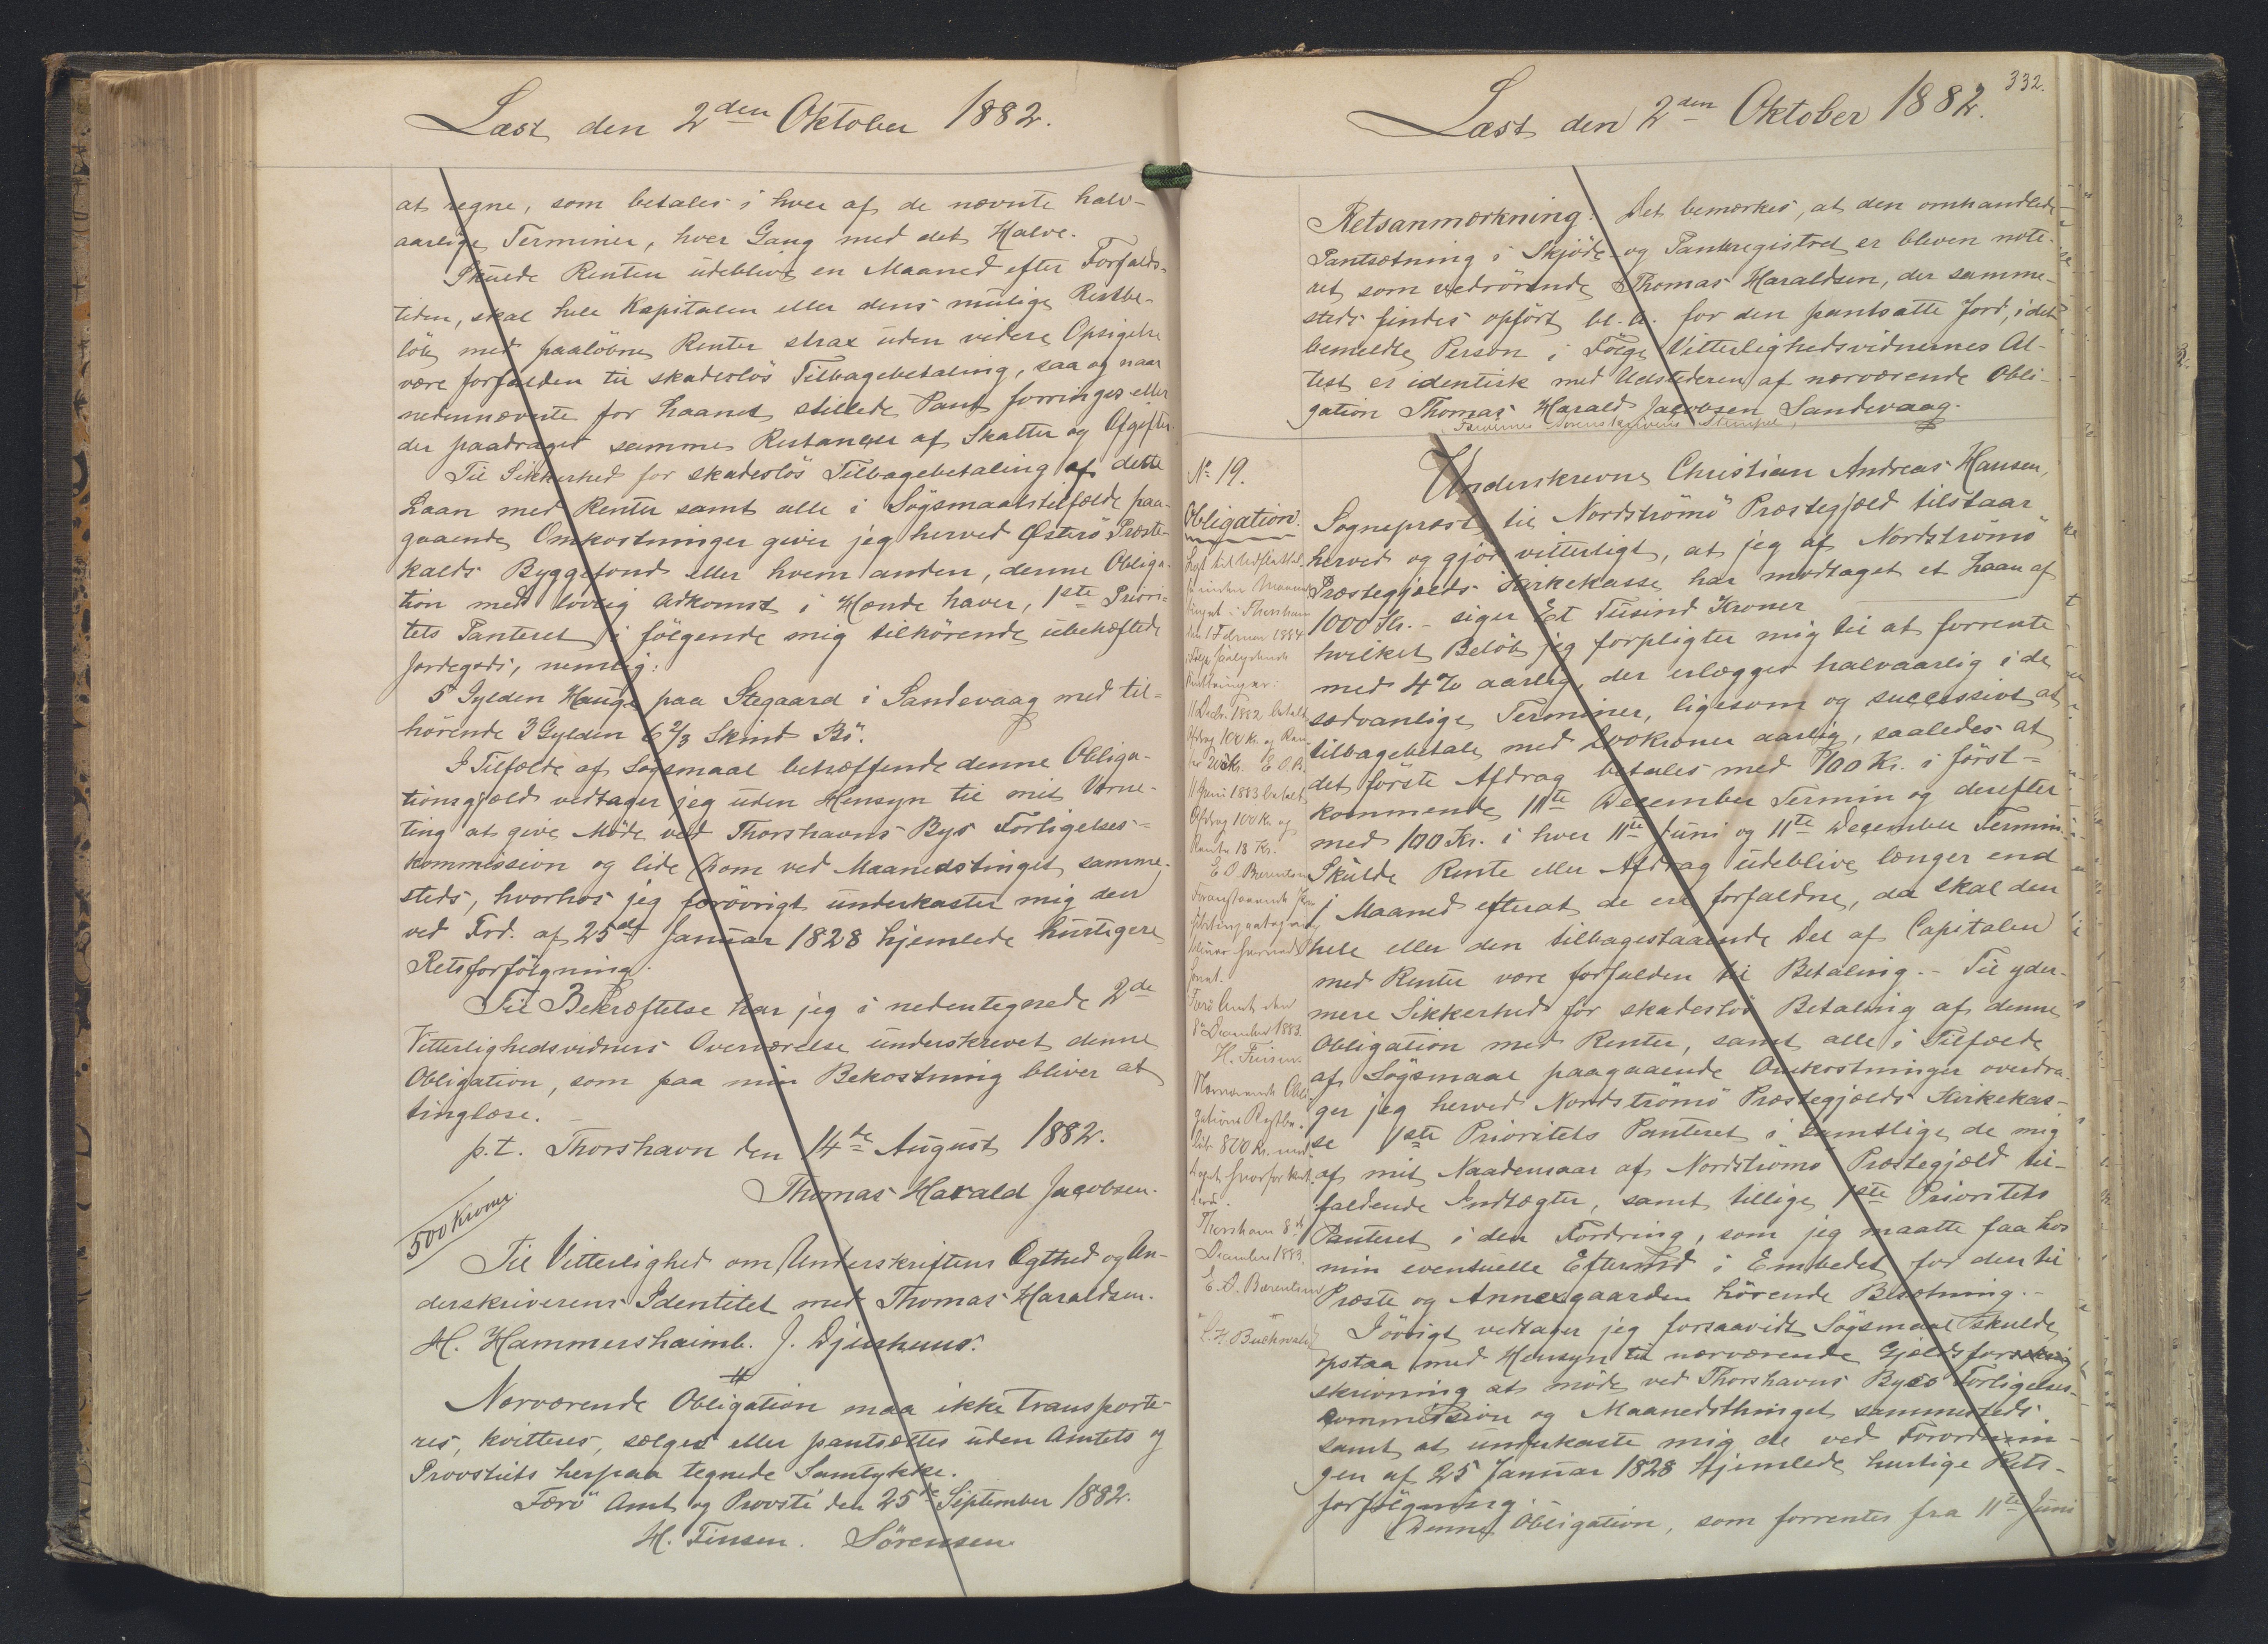 Læst den 2den Oktober 1882.
at regne, som betales i hver af de nævnte halv-
aarlige Terminer, hver Gang med det Halve.
Skulde Renten udeblive en Maaned efter Forfalds-
tiden, skal hele Kapitalen eller dens mulige Restbe-
löb med paalöbne Renter strax uden videre Opsigelse
være forfalden til skadeslös Tilbagebetaling, saa og naar
nedennævnte for Laanet stillede Pant forringes eller
der paadrages samme Restancer af Skatter og Afgifter.
Til Sikkerhed for skadeslös Tilbagebetaling af dette
Laan med Renter samt alle i Sögsmaalstilfælde paa-
gaaende Omkostninger giver jeg herved Østerö Præste-
kalds Byggefond eller hvem anden, denne Obliga-
tion med lovlig Adkomst i Hænde haver, 1ste Priori-
tets Panteret i følgende mig tilhörende ubehæftede
Jordegods, nemlig:
5 Gylden Hauge paa Stegaard i Sandevaag med til-
hörende 3 Gylden 6 2/3 Skind Bö.
I Tilfælde af Sögsmaal betræffende denne Obliga-
tionsgjæld vedtager jeg uden Hensyn til mit Værne-
ting at give Möde ved Thorshavns Bys Forligelses-
kommission og lide Dom ved Maanedstinget samme-
steds, hvorhos jeg forövrigt underkaster mig den
ved Frd. af 25de Januar 1828 hjemlede hurtigere
Retsforfölgning.
Til Bekræftelse har jeg i nedentegnede 2de
Vitterlighedsvidners Overværelse underskrevet denne
Obligation, som paa min Bekostning bliver at
tinglæse.
p.t. Thorshavn den 14de August 1882.
Thomas Harald Jacobsen.
500 Kroner
Til Vitterlighed om Underskriftens Ægthed og Un-
derskriverens Identitet med Thomas Haraldsen.
H. Hammershaimb. J. Djurhuus.
Nærværende Obligation maa ikke transporte-
res, kvitteres, sælges eller pantsættes uden Amtets og
Provstiets herpaa tegnede Samtykke.
Færö Amt og Provsti den 25de September 1882.
H. Finsen. Sörensen
332.
Læst den 2den Oktober 1882.
Retsanmærkning: Det bemærkes, at den omhandlede
Pantsætning i Skjöde- og Panteregistret er bleven note-
ret som vedrörende Thomas Haraldsen, der samme-
steds findes opfört bl. a. for den pantsatte Jord, idet
bemeldte Person i Fölge Vitterlighedsvidnernes At-
test er identisk med Udstederen af nærværende Obli-
gation Thomas Harald Jacobsen Sandevaag.
Færöernes Sorenskriveries Stempel,
No 19.
Obligation.
Underskrevne Christian Andreas Hansen,
Sognepræst til Nordströmö Præstegjæld tilstaar
herved og gjör vitterligt, at jeg af Nordströmö
Præstegjælds Kirkekasse har modtaget et Laan af
1000 Kr. – siger Et Tusind Kroner
hvilket Belöb jeg forpligter mig til at forrente
med 4% aarlig, der erlægges halvaarlig i de
sædvanlige Terminer, ligesom og successivt at
tilbagebetale med 200 Kroner aarlig, saaledes at
det förste Afdrag betales med 100 Kr. i först-
kommende 11te December Termin og derefter
med 100 Kr. i hver 11te Juni og 11te December Termin.
Skulde Rente eller Afdrag udeblive længer end
1 Maaned efterat de ere forfaldne, da skal den
hele eller den tilbagestaaende Del af Capitalen
med Renter være forfalden til Betaling. – Til yder-
mere Sikkerhed for skadeslös Betaling af denne
Obligation med Renter, samt alle i Tilfælde
af Sögsmaal paagaaende Omkostninger overdra-
ger jeg herved Nordströmö Præstegjælds Kirkekas-
se 1ste Prioritets Panteret i samtlige de mig
af mit Naadensaar af Nordströmö Præstegjæld til-
faldende Indtægter, samt tillige 1ste Prioritets
Panteret i den Fordring, som jeg maatte faa hos
min eventuelle Eftermd i Embedet for den til
Præste og Annexgaarden hörende Besætning. –
Iövrigt vedtager jeg forsaavidt Sögsmaal skulde
opstaa med Hensyn til nærværende Gjeldsfor
skrivning at möde ved Thorshavns Byes Forligelses-
commission og Maanedsthinget sammesteds
samt at underkaste mig de ved Forordnin-
gen af 25 Januar 1828 hjemlede hurtige Rets-
forfölgning.
Denne Obligation, som forrentes fra 11te Juni
Læst til Udslettel
se inden Maaneds
tinget i Thorshavn
den 1 Februar 1884
11 Decbr. 1882 betalt
Afdrag 100 Kr. og Ren
te 20 Kr. E. O. B.
11 Juni 1883 betalt
Afdrag 100 Kr. og
Rente 18 Kr.
E O Bærentsen
Færö Amt den
8 December 1883.
H. Finsen.
Nærværende Obli-
gations Restbe-
löb 800 Kr. mod-
taget hvorfor kvit-
teres.
Thorshavn 8de
December 1883.
E. O. Bærentsen